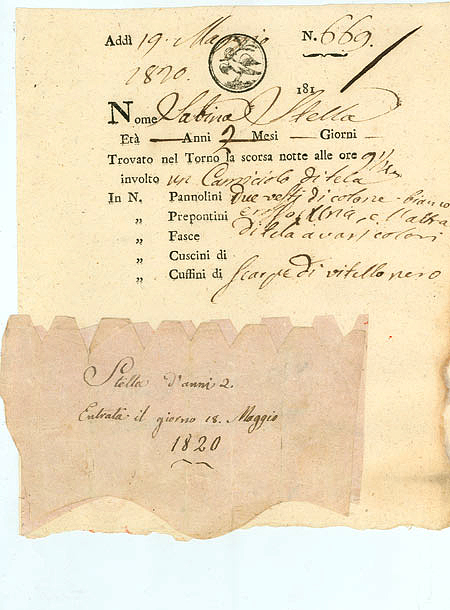 Addì 19. Maggio N. 669.
1820.
181
Nome Sabina Stella
Età — Anni 2 Mesi — Giorni —
Trovato nel Torno la scorsa notte alle ore 9 1/4
involto un Camiciolo di tela
In N. Pannolini due vesti di colore bianco
„ Prepontini e l'altra
„ Fasce di tela a varj colori
„ Cuscini di
„ Cuffini di Scarpe di vitello nero
Stella d'anni 2.
Entrata il giorno 18. Maggio
1820